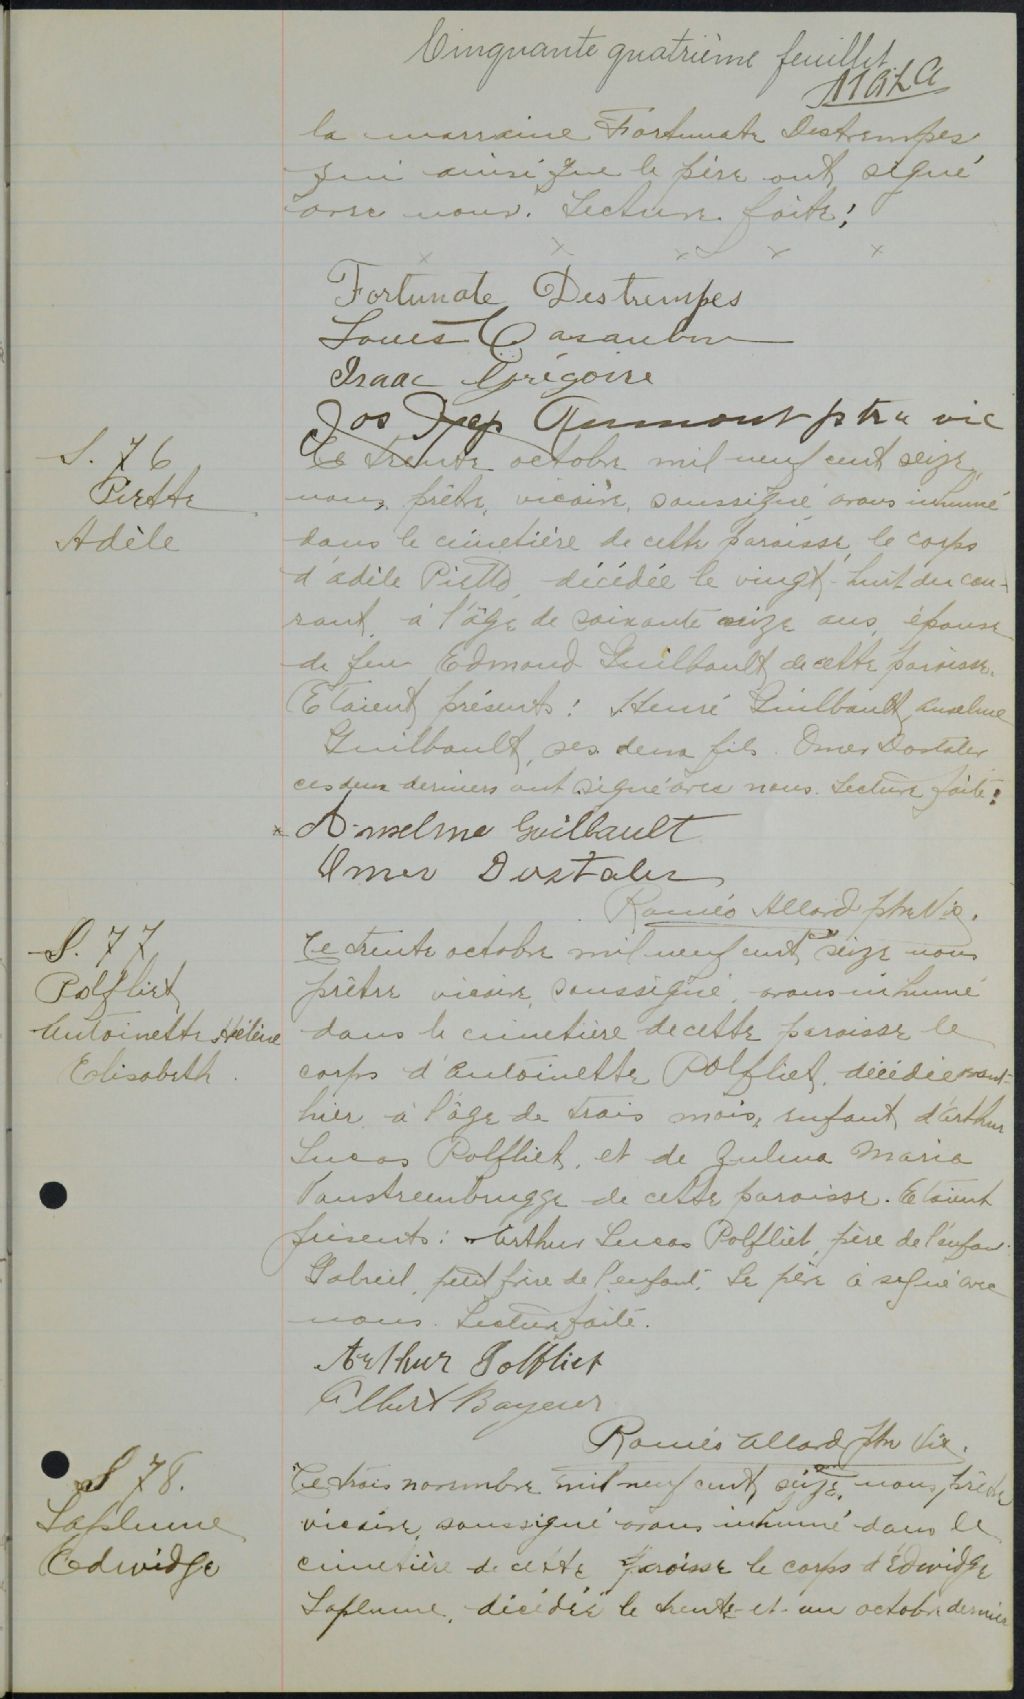 Cinquante quatrième feuillet
la marraine Fortunate Destrempes
qui ainsi que le père ont signé
avec nous. Lecture faite!
Fortunate Destrempes
Louis Casaubon
Isaac Grégoire
Jos Aumont ptre vic
S. 76
Piette
Adèle
Ce trente octobre mil neuf cent seize
nous, prêtre, vicaire, soussigné avons inhumé
dans le cimetière de cette paroisse, le corps
d'adèle Piette, décédée le vingt-huit du cou-
rant, à l'âge de soixante seize ans, épouse
de feu Edmond Guilbault, de cette paroisse.
Etaient présents: Henri Guilbault, anselme
Guilbault, ses deux fils. Omer Dostaler
ces deux derniers ont signé avec nous. Lecture faite!
Anselme Guilbault
Omer Dostaler
Roméo Allard ptre Vic.
S. 77
Polfliet
Antoinette Hélène
Elisabeth
Ce trente octobre mil neuf cent seize nous
prêtre vicaire, soussigné, avons inhumé
dans le cimetière de cette paroisse le
corps d'Antoinette Polfliet, décédée avant-
hier à l'âge de trois mois, enfant d'arthur
Lucas Polfliet, et de Zulma Maria
Vanstreenbrugge de cette paroisse. Etaient
présents: Arthur Lucas Polfliet, père de l'enfan
Gabriel, petit frère de l'enfant. Le père a signé avec
nous. Lecture faite.
Arthur Polfliet
Albert Bayeur
Roméo Allard ptre Vic.
S 78.
Laplume
Edwidge
Ce trois novembre mil neuf cent seize, nous, prêtre
vicaire, soussigné avons inhumé dans le
cimetière de cette paroisse le corps d'Edwidge
Laplume, décédée le trente-et-un octobre dernier